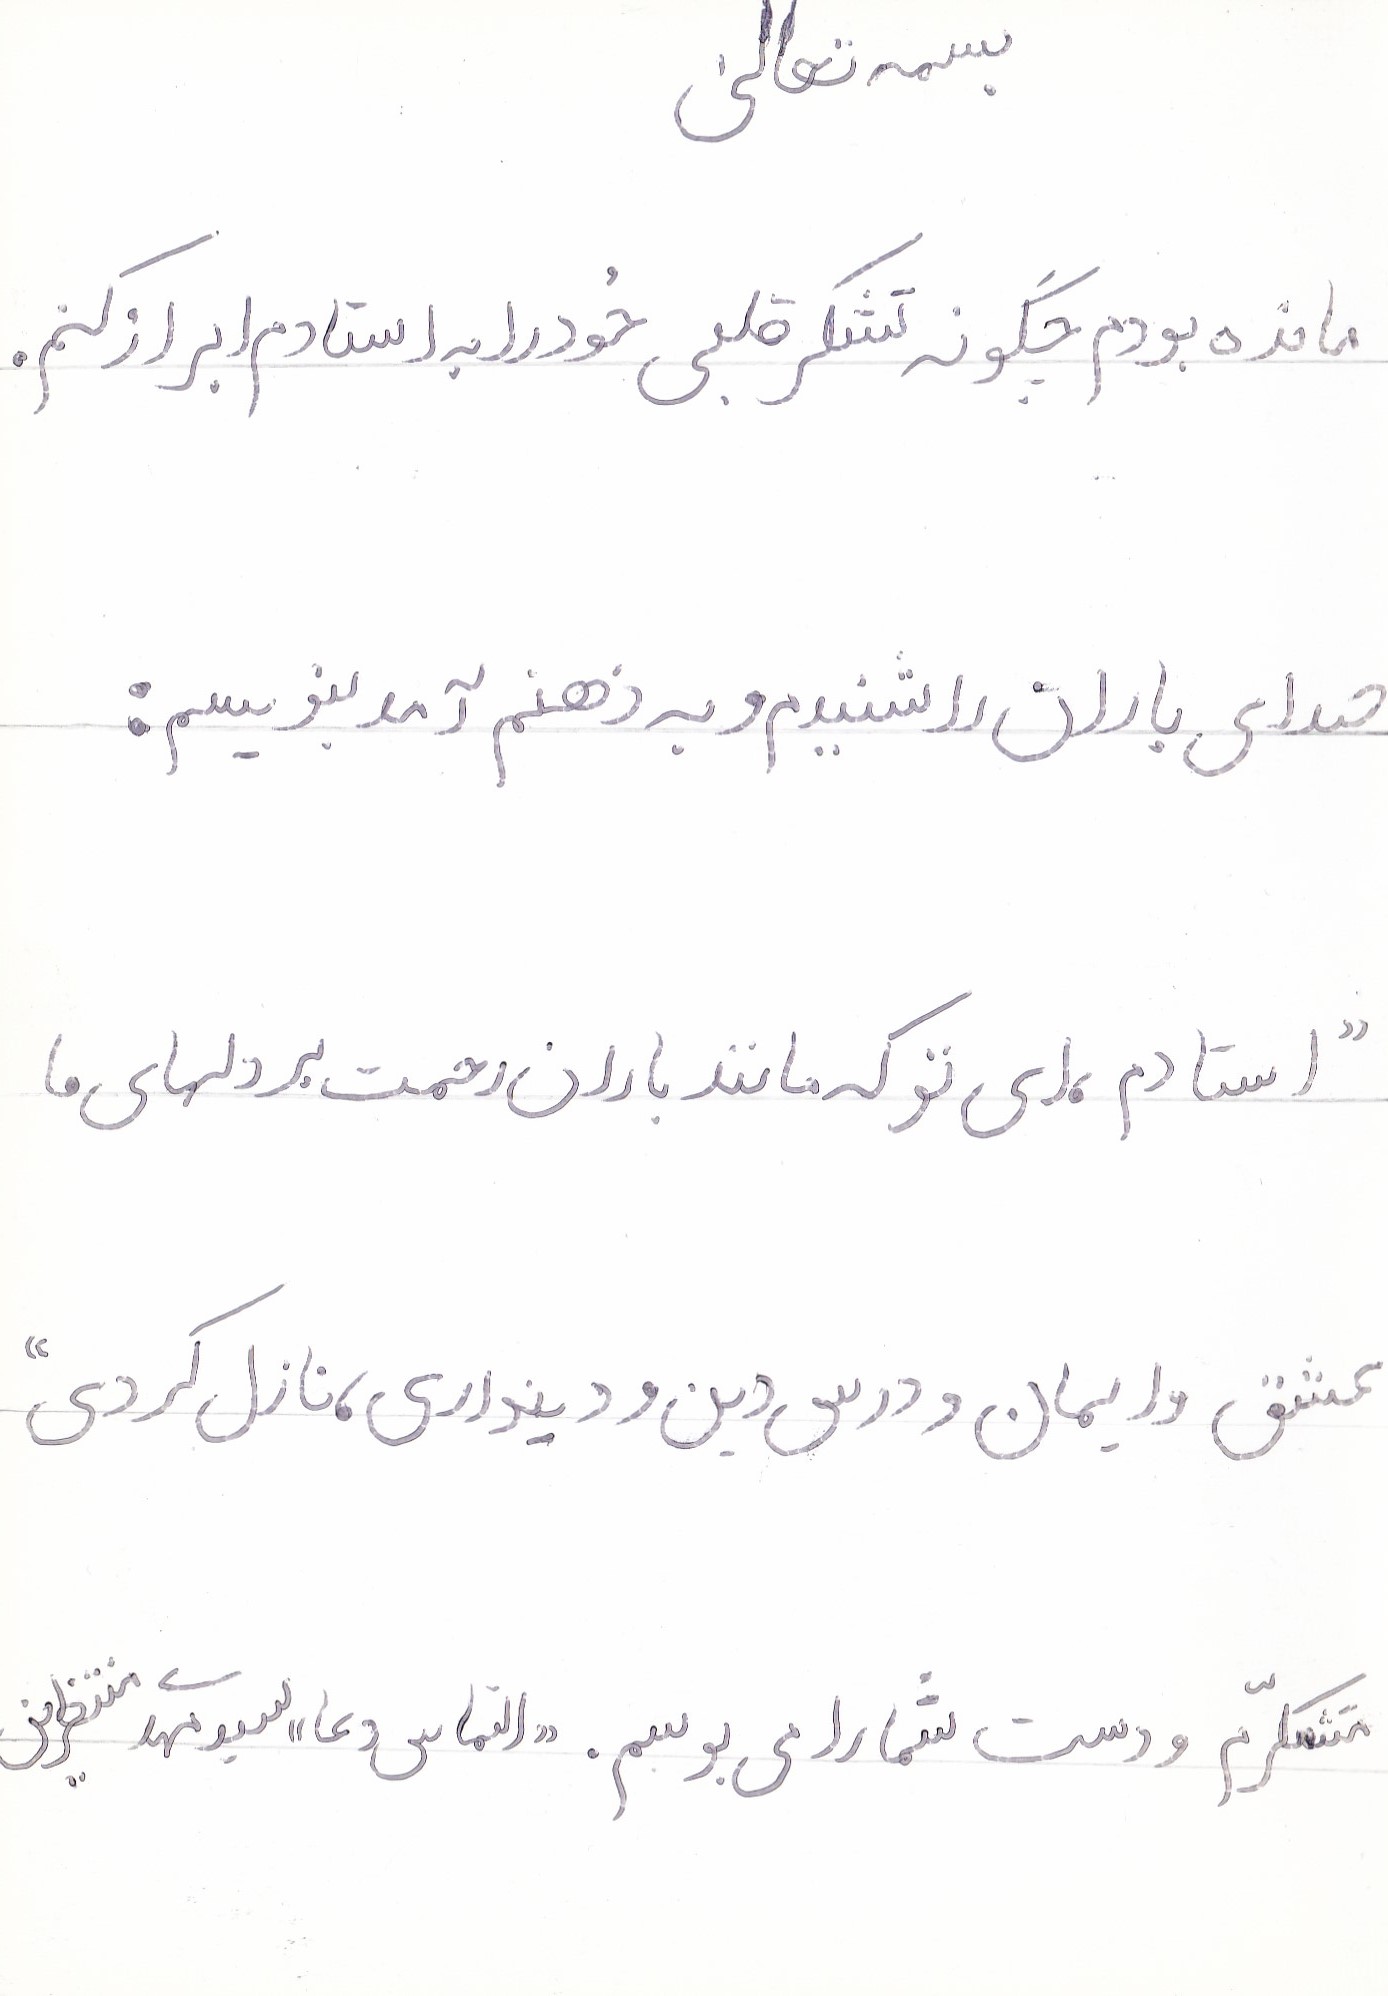 بسمه تعالی
مانده بودم چگونه تشکر قلبی خُود را به استادم ابراز کنم.
صدای باران را شنیدم و به ذهنم آمد بنویسم:
”استادم، ای تو که مانند باران رحمت بر دلهای ما
عشق و ایمان و درس دین و دینداری، نازل کردی“
متشکرّم و دست شما را می بوسم. «التماس دعا» سید مهدی